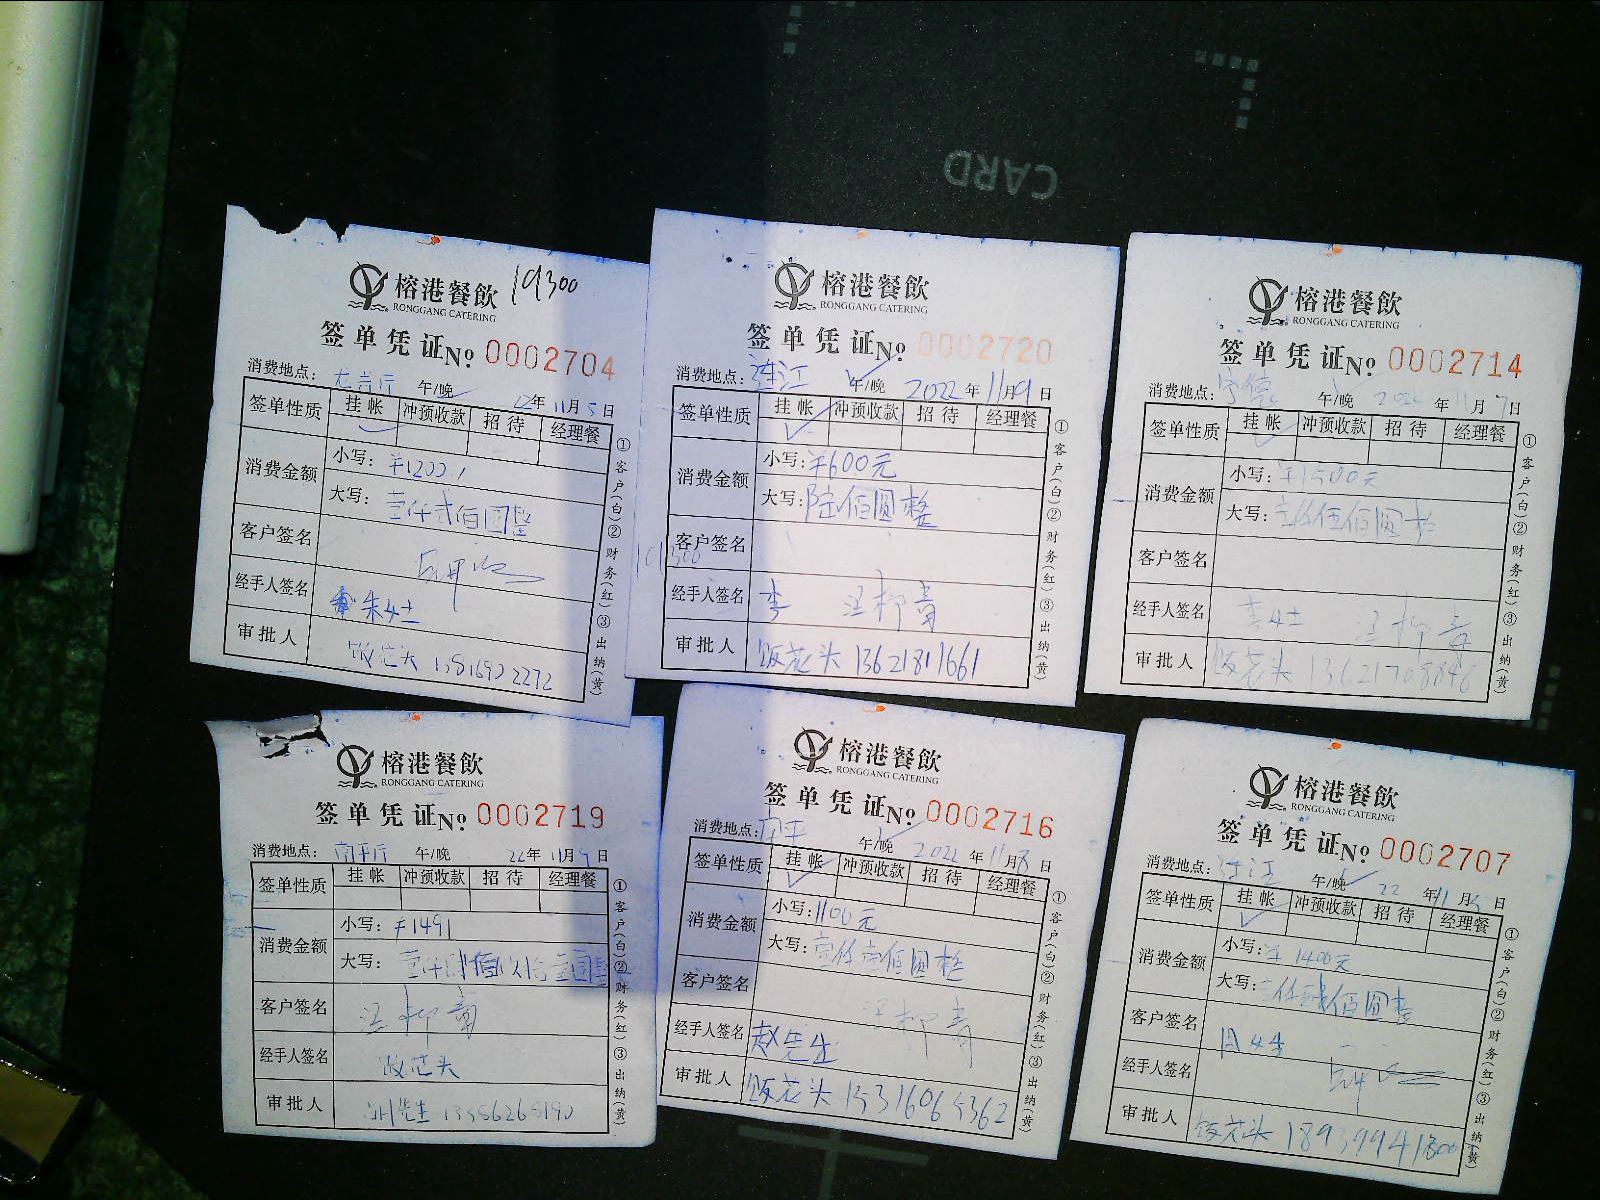 CARD
19300
榕港餐飲
RONGGANG CATERING
签单凭证№ 0002704
消费地点： 午/晚 22年11月5日
签单性质 挂帐 冲预收款 招待 经理餐
消费金额 小写：¥1200
大写：壹仟贰佰圆整
客户签名
经手人签名 朱女士
审批人 饭范头
①客户(白)②财务(红)③出纳(黄)
榕港餐飲
RONGGANG CATERING
签单凭证№ 0002720
消费地点：连江 午/晚 2022年11月9日
签单性质 挂帐 冲预收款 招待 经理餐
消费金额 小写：¥600元
大写：陆佰圆整
客户签名
经手人签名 李 汪柳青
审批人 饭范头 13621811661
①客户(白)②财务(红)③出纳(黄)
榕港餐飲
RONGGANG CATERING
签单凭证№ 0002714
消费地点：宁德 午/晚 2022年11月7日
签单性质 挂帐 冲预收款 招待 经理餐
消费金额 小写：¥1500元
大写：壹仟伍佰圆整
客户签名
经手人签名 李女士 汪柳青
审批人 饭范头 13621708848
①客户(白)②财务(红)③出纳(黄)
榕港餐飲
RONGGANG CATERING
签单凭证№ 0002719
消费地点：南平厅 午/晚 22年11月9日
签单性质 挂帐 冲预收款 招待 经理餐
消费金额 小写：¥1491
大写：壹仟肆佰玖拾壹圆整
客户签名 汪柳青
经手人签名 饭范头
审批人
①客户(白)②财务(红)③出纳(黄)
榕港餐飲
RONGGANG CATERING
签单凭证№ 0002716
消费地点：南平 午/晚 2022年11月8日
签单性质 挂帐 冲预收款 招待 经理餐
消费金额 小写：1100元
大写：壹仟壹佰圆整
客户签名 汪柳青
经手人签名 赵先生
审批人 饭范头 15316065362
①客户(白)②财务(红)③出纳(黄)
榕港餐飲
RONGGANG CATERING
签单凭证№ 0002707
消费地点：连江 午/晚 22年11月5日
签单性质 挂帐 冲预收款 招待 经理餐
消费金额 小写：¥1400元
大写：
客户签名
经手人签名
审批人 饭范头
①客户(白)②财务(红)③出纳(黄)